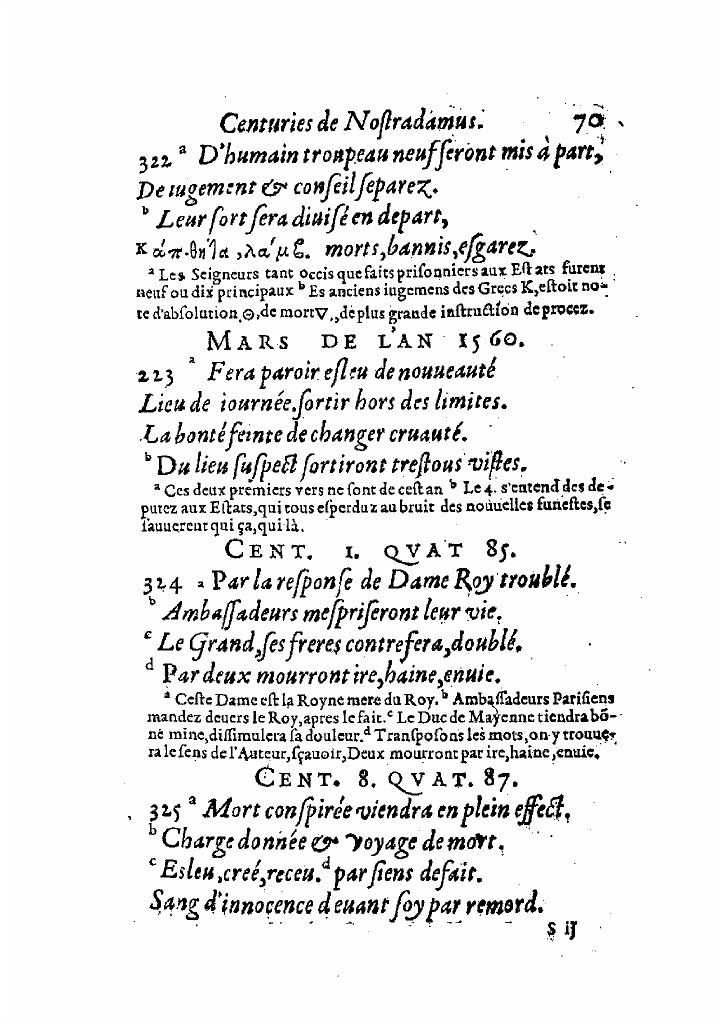 Centuries de Noſtradamus. 70
322 a D'humain troupeau neuf ſeront mis à part,
De iugement & conſeil ſeparez.
b Leur ſort ſera diuiſé en depart,
morts, bannis, eſgarez.
a Les Seigneurs tant occis que faits priſonniers aux Eſtats furent
neuf ou dix principaux b Es anciens iugemens des Grecs K, eſtoit no-
te d'abſolution, Θ, de mort ∇, de plus grande inſtruction de procez.
MARS DE L'AN 1560.
223 a Fera paroir eſleu de nouueauté
Lieu de iournée, ſortir hors des limites.
La bonté feinte de changer cruauté.
b Du lieu ſuſpect ſortiront treſtous viſtes.
a Ces deux premiers vers ne ſont de ceſt an b Le 4. s'entend des de-
putez aux Eſtats, qui tous eſperduz au bruit des nouuelles funeſtes, ſe
ſauuerent qui ça, qui là.
CENT. 1. QVAT 85.
324 a Par la reſponſe de Dame Roy troublé.
b Ambaſſadeurs meſpriſeront leur vie.
c Le Grand, ſes freres contrefera, doublé.
d Par deux mourront ire, haine, enuie.
a Ceſte Dame eſt la Royne mere du Roy. b Ambaſſadeurs Pariſiens
mandez deuers le Roy, apres le fait. c Le Duc de Mayenne tiendra bõ-
ne mine, diſſimulera ſa douleur. d Tranſpoſons les mots, on y trouue-
ra le ſens de l'Auteur, ſçauoir, Deux mourront par ire, haine, enuie.
CENT. 8. QVAT. 87.
325 a Mort conſpirée viendra en plein effect,
b Charge donnée & voyage de mort.
c Esleu, creé, receu. d par ſiens defait.
Sang d'innocence deuant ſoy par remord.
S ij